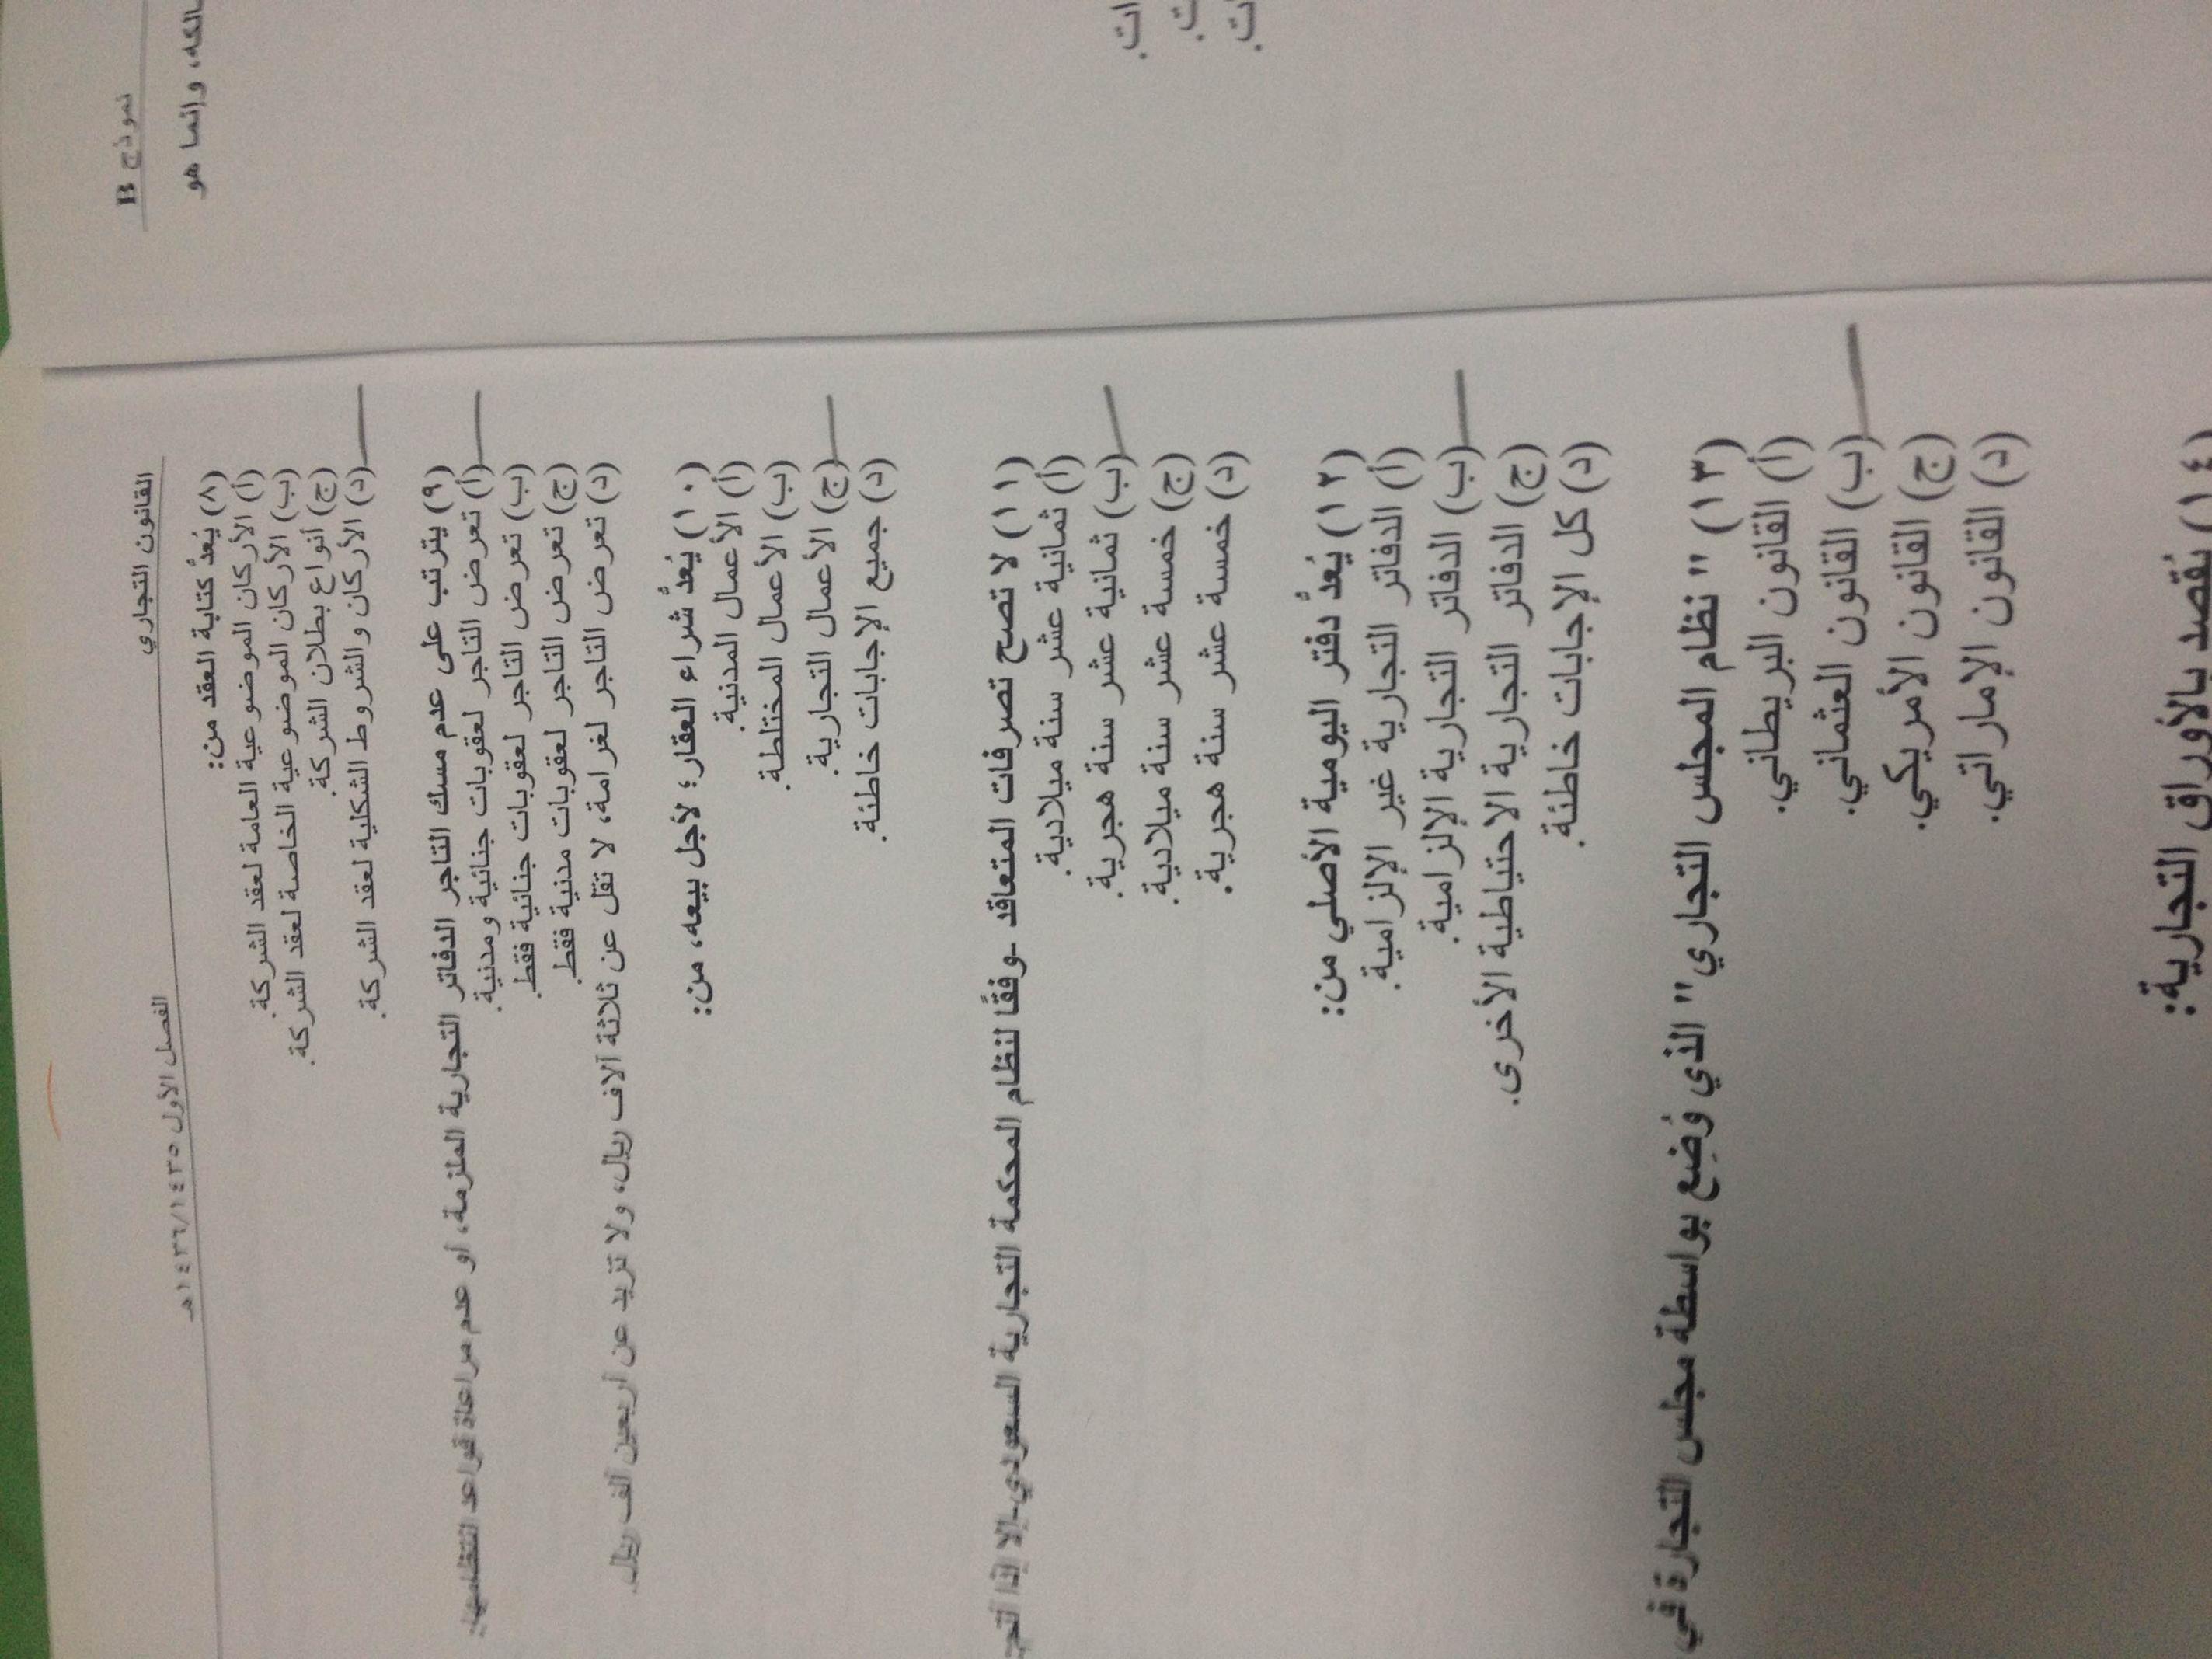 نموذج B
وإنما هو
ات.
القانون التجاري
الفصل الأول ١٤٣٥/١٤٣٦هـ
(٨) يُعدُّ كتابة العقد من:
(أ) الأركان الموضوعية العامة لعقد الشركة.
(ب) الأركان الموضوعية الخاصة لعقد الشركة.
(ج) أنواع بطلان الشركة.
(د) الأركان والشروط الشكلية لعقد الشركة.
(٩) يترتب على عدم مسك التاجر الدفاتر التجارية الملزمة، أو عدم مراعاة قواعد انتظامها:
(أ) تعرض التاجر لعقوبات جنائية ومدنية.
(ب) تعرض التاجر لعقوبات جنائية فقط.
(ج) تعرض التاجر لعقوبات مدنية فقط.
(د) تعرض التاجر لغرامة، لا تقل عن ثلاثة آلاف ريال، ولا تزيد عن أربعين ألف ريال.
(١٠) يُعدُّ شراء العقار؛ لأجل بيعه، من:
(أ) الأعمال المدنية.
(ب) الأعمال المختلطة.
(ج) الأعمال التجارية.
(د) جميع الإجابات خاطئة.
(١١) لا تصح تصرفات المتعاقد -وفقًا لنظام المحكمة التجارية السعودي- إلا إذا
(أ) ثمانية عشر سنة ميلادية.
(ب) ثمانية عشر سنة هجرية.
(ج) خمسة عشر سنة ميلادية.
(د) خمسة عشر سنة هجرية.
(١٢) يُعدُّ دفتر اليومية الأصلي من:
(أ) الدفاتر التجارية غير الإلزامية.
(ب) الدفاتر التجارية الإلزامية.
(ج) الدفاتر التجارية الاحتياطية الأخرى.
(د) كل الإجابات خاطئة.
(١٣) " نظام المجلس التجاري" الذي وُضِع بواسطة مجلس التجارة في
(أ) القانون البريطاني.
(ب) القانون العثماني.
(ج) القانون الأمريكي.
(د) القانون الإماراتي.
(١٤) يُقصد بالأوراق التجارية: